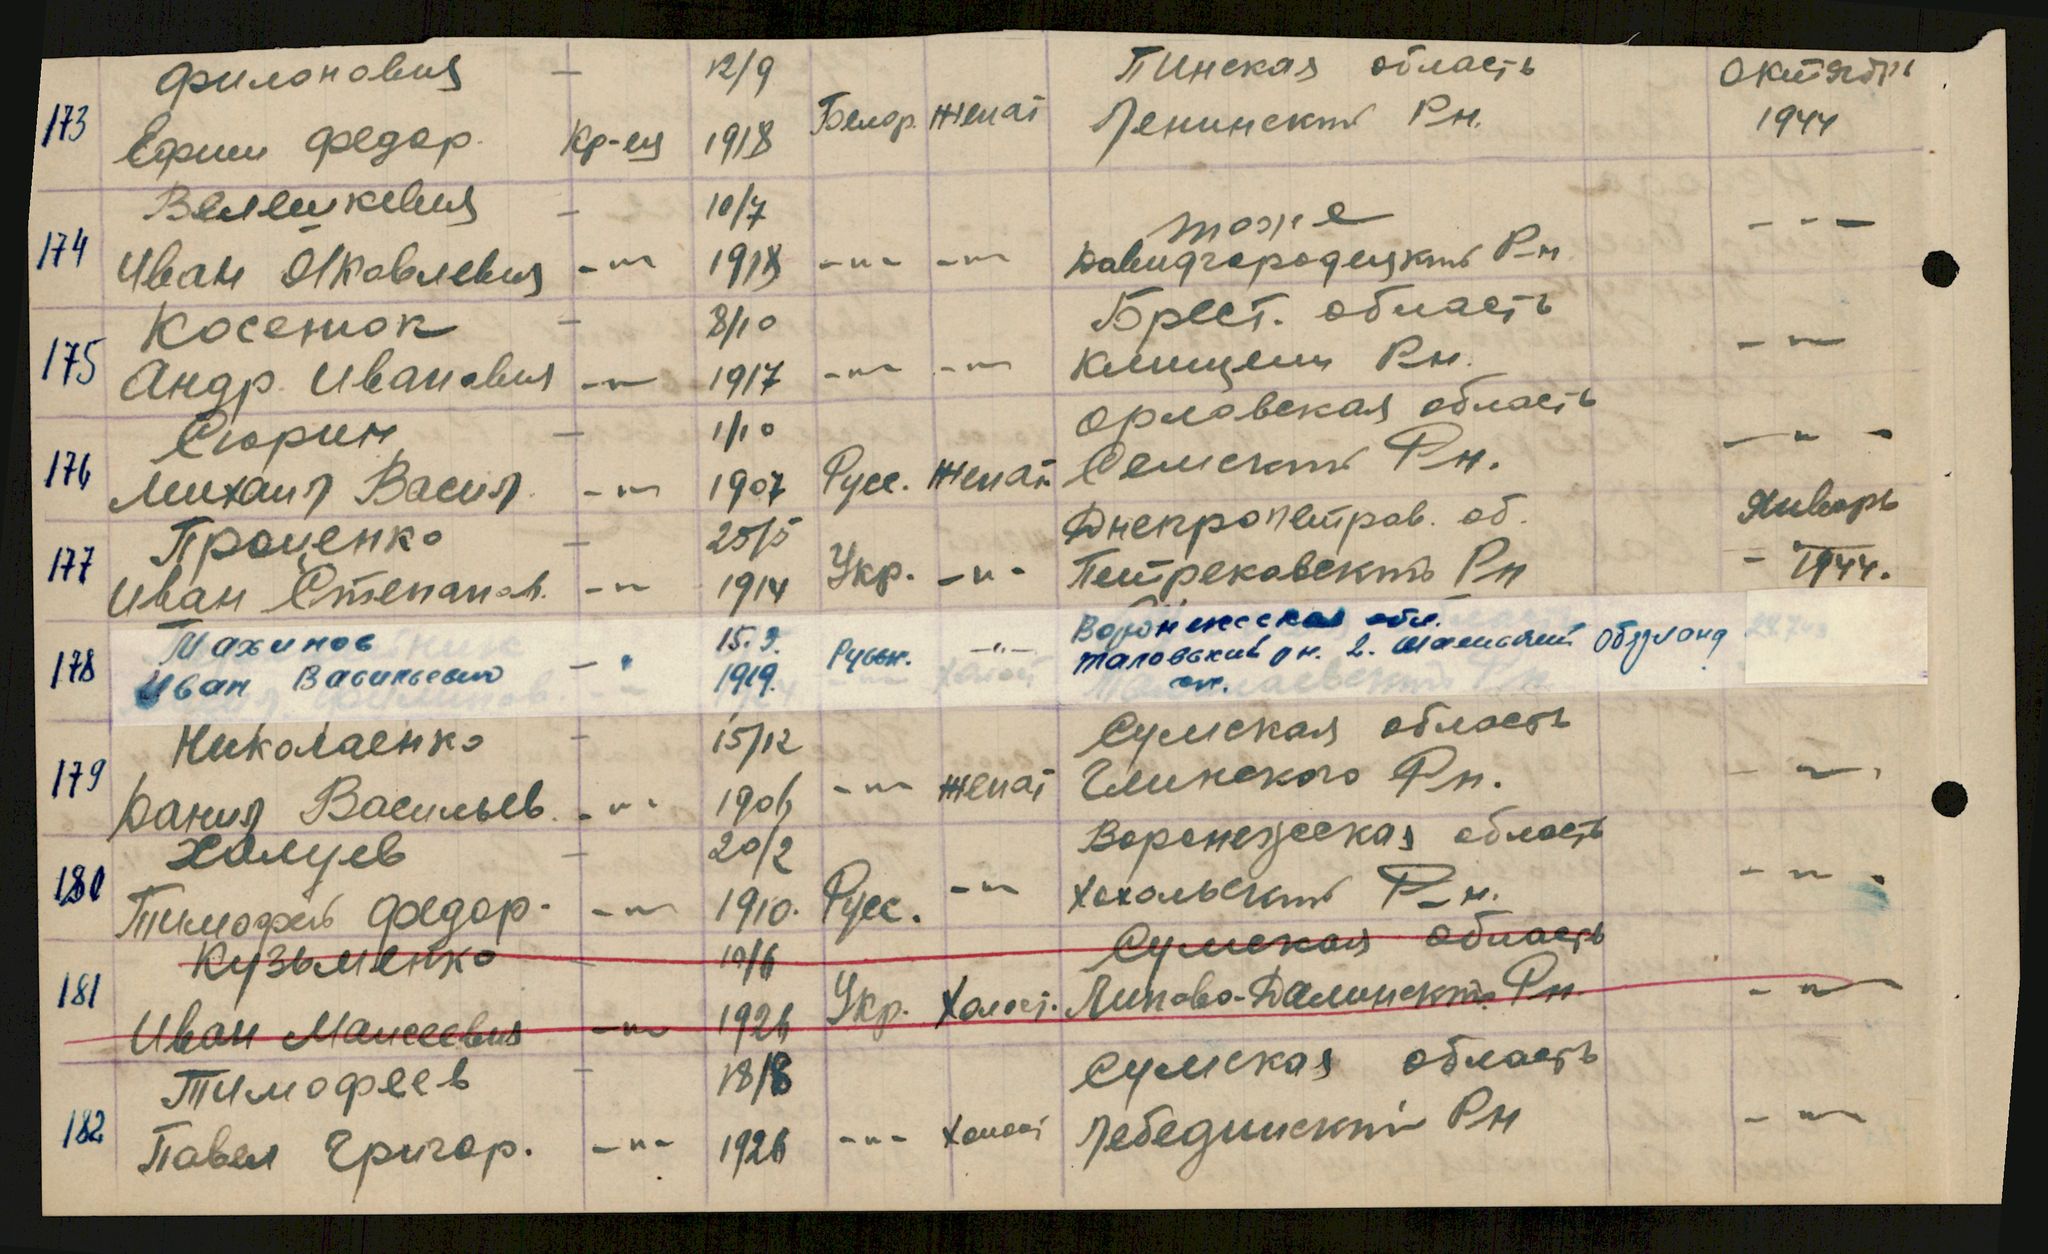 Филонович — 12/9 Пинская область Октябрь
173 Ефим Федор. Кр-ец 1918 Белор. Женат Ленинский Рн. 1944
Велешкевич — 10/7 тоже
174 Иван Яковлевич -"- 1918 -"- -"- Давидгородецкий Р-н - - -
Косенюк — 8/10 Брест. область
175 Андр. Иванович -"- 1917 -"- -"- Рн. -"-
Сюрин — 1/10 Орловская область
176 Михаил Васил. -"- 1907 Русс. Женат Рн. -"-
Проценко — 25/5 Днепропетров. об. Январь
177 Иван Степанов. -"- 1914 Укр. -"- Петрековский Рн - 1944.
Махинов 15.9. Воронежская обл.
178 Иван Васильевич -"- 1919. Русск. -"- Таловский рн.
Николаенко — 15/12 Сумская область
179 Данил Васильев. -"- 1906 -"- женат Глинского Рн. -"-
Халуев — 20/2 Воронежская область
180 Тимофей Федор. -"- 1910. Русс. -"- Хохольский Р-н. -"-
Кузьменко — 10/6 Сумская область
181 Иван Маисеевич -"- 1926 Укр. Холост. Липово-Далинский Рн. -"-
Тимофеев — 18/8 Сумская область
182 Павел Григор. -"- 1926 -"- холост Лебединский Рн -"-